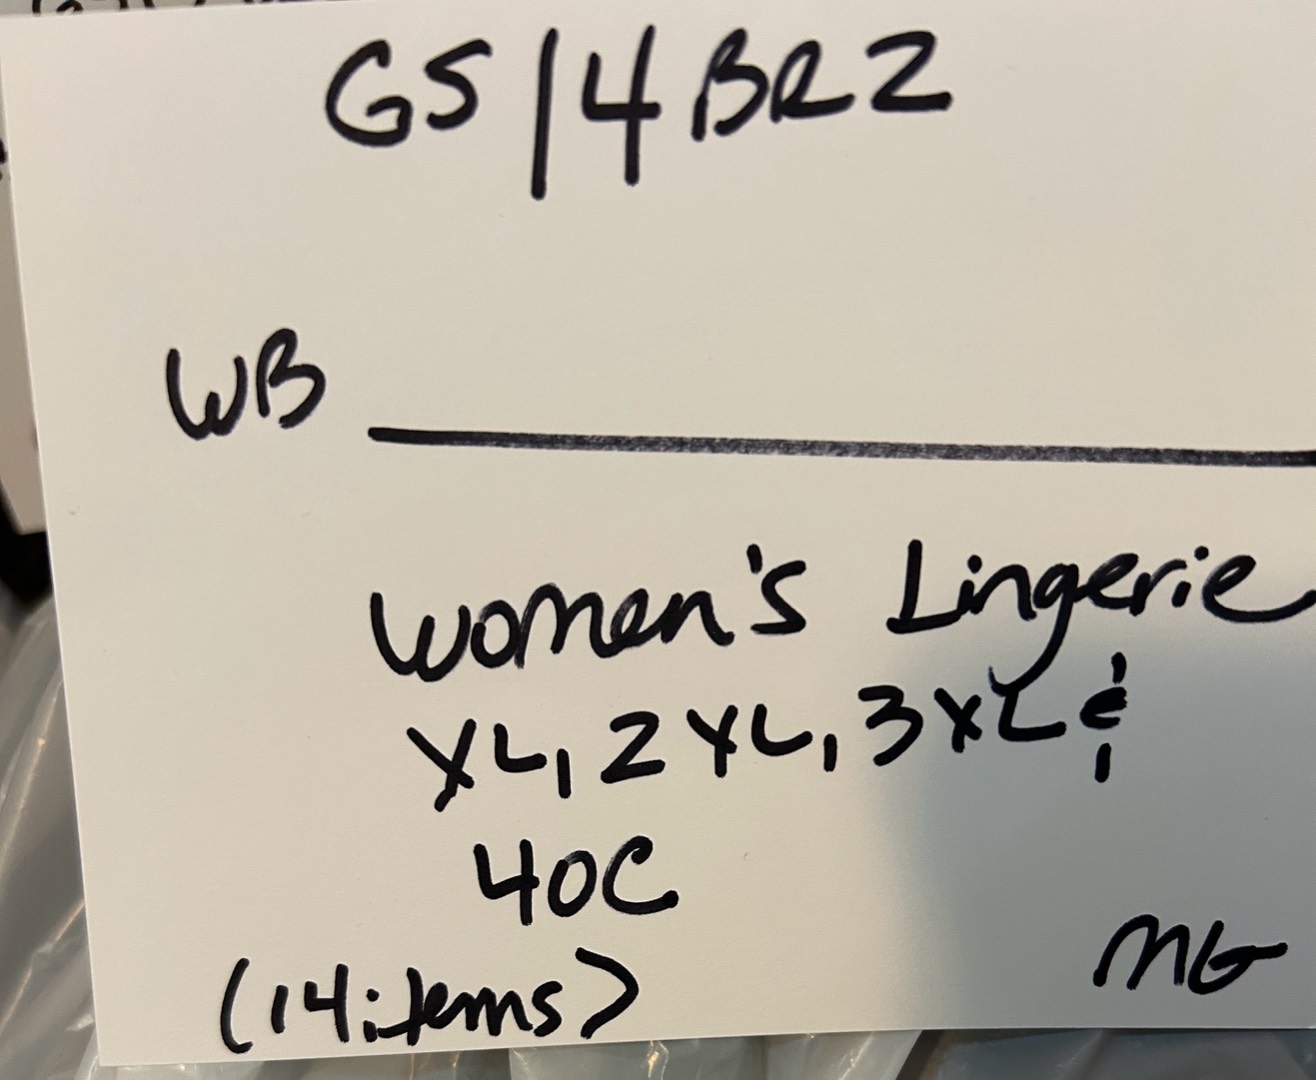 GS/4BRZ
WB
Women's Lingerie
XL, 2XL, 3XL &
40C
(14 items)
MG